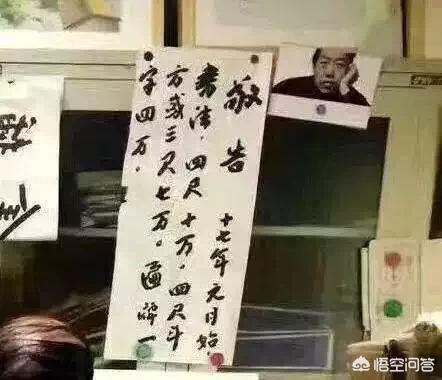 敬告 十七年元月始，
書法，四尺十万。四尺斗
方或三尺七万。匾额一
字四万。
悟空问答